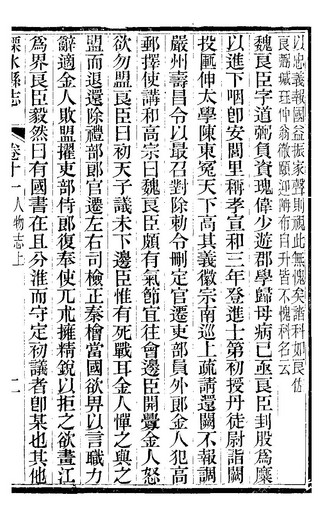 以忠義報國益振家聲則視此無愧矣諸科如良佐
良弼珹珏仲翁徹頤迎濟布自升皆不愧科名云
魏良臣字道弼負資瑰偉少遊郡學歸母病已亟良臣刲股為糜
以進下咽卽安閭里稱孝宣和三年登進士第初授丹徒尉詣闕
投匭伸太學陳東冤天下高其義徽宗南巡上疏請還闕不報調
嚴州壽昌令以最召對除勅令刪定官遷吏部員外郎金人犯高
郵擇使講和高宗曰魏良臣頗有氣節宜往會邊臣開釁金人怒
欲勿盟良臣曰初天子議未下邊臣惟有死戰耳金人憚之與之
盟而退還除禮部郎官遷左右司檢正秦檜當國欲畀以言職力
辭適金人敗盟擢吏部侍郎復奉使兀朮擁精銳以拒之欲畫江
為界良臣毅然曰有國書在且分淮而守定初議者卽某也其他
溧水縣志 卷十一 人物志上 二